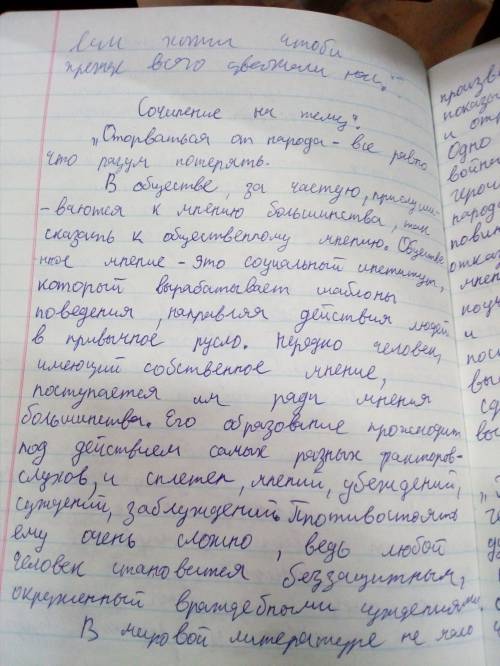 хотим чтоби
прежде всего уважали нас.
Сочинение на тему:
„Оторваться от народа - все равно
что разум потерять.
В обществе, за частую, прислуши-
-ваются к мнению большинства, так
сказать к общественному мнению. Обществе
нное мнение - это социальный институт,
который вырабатывает шаблоны
поведения, направляя действия людей
в привычное русло. Нередко человек,
имеющий собственное мнение,
поступается им ради мнения
большинства. Его образование происходит
под действием самых разных факторов-
слухов, и сплетен, мнений, убеждений,
суждений, заблуждений. Противостоять
ему очень сложно, ведь любой
человек становится беззащитным,
окруженный враждебными суждениями.
В мировой литературе не мало
произв
показа
и отр
Одно
война
геро
народа
повли
отказ
мнен
поуч
и
посл
выс
сд
вы